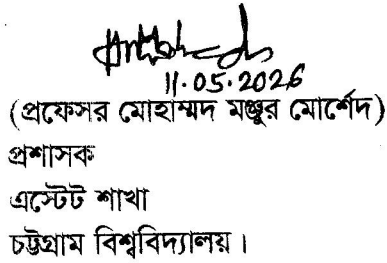 11.05.2026
(প্রফেসর মোহাম্মদ মঞ্জুর মোর্শেদ)
প্রশাসক
এস্টেট শাখা
চট্টগ্রাম বিশ্ববিদ্যালয়।